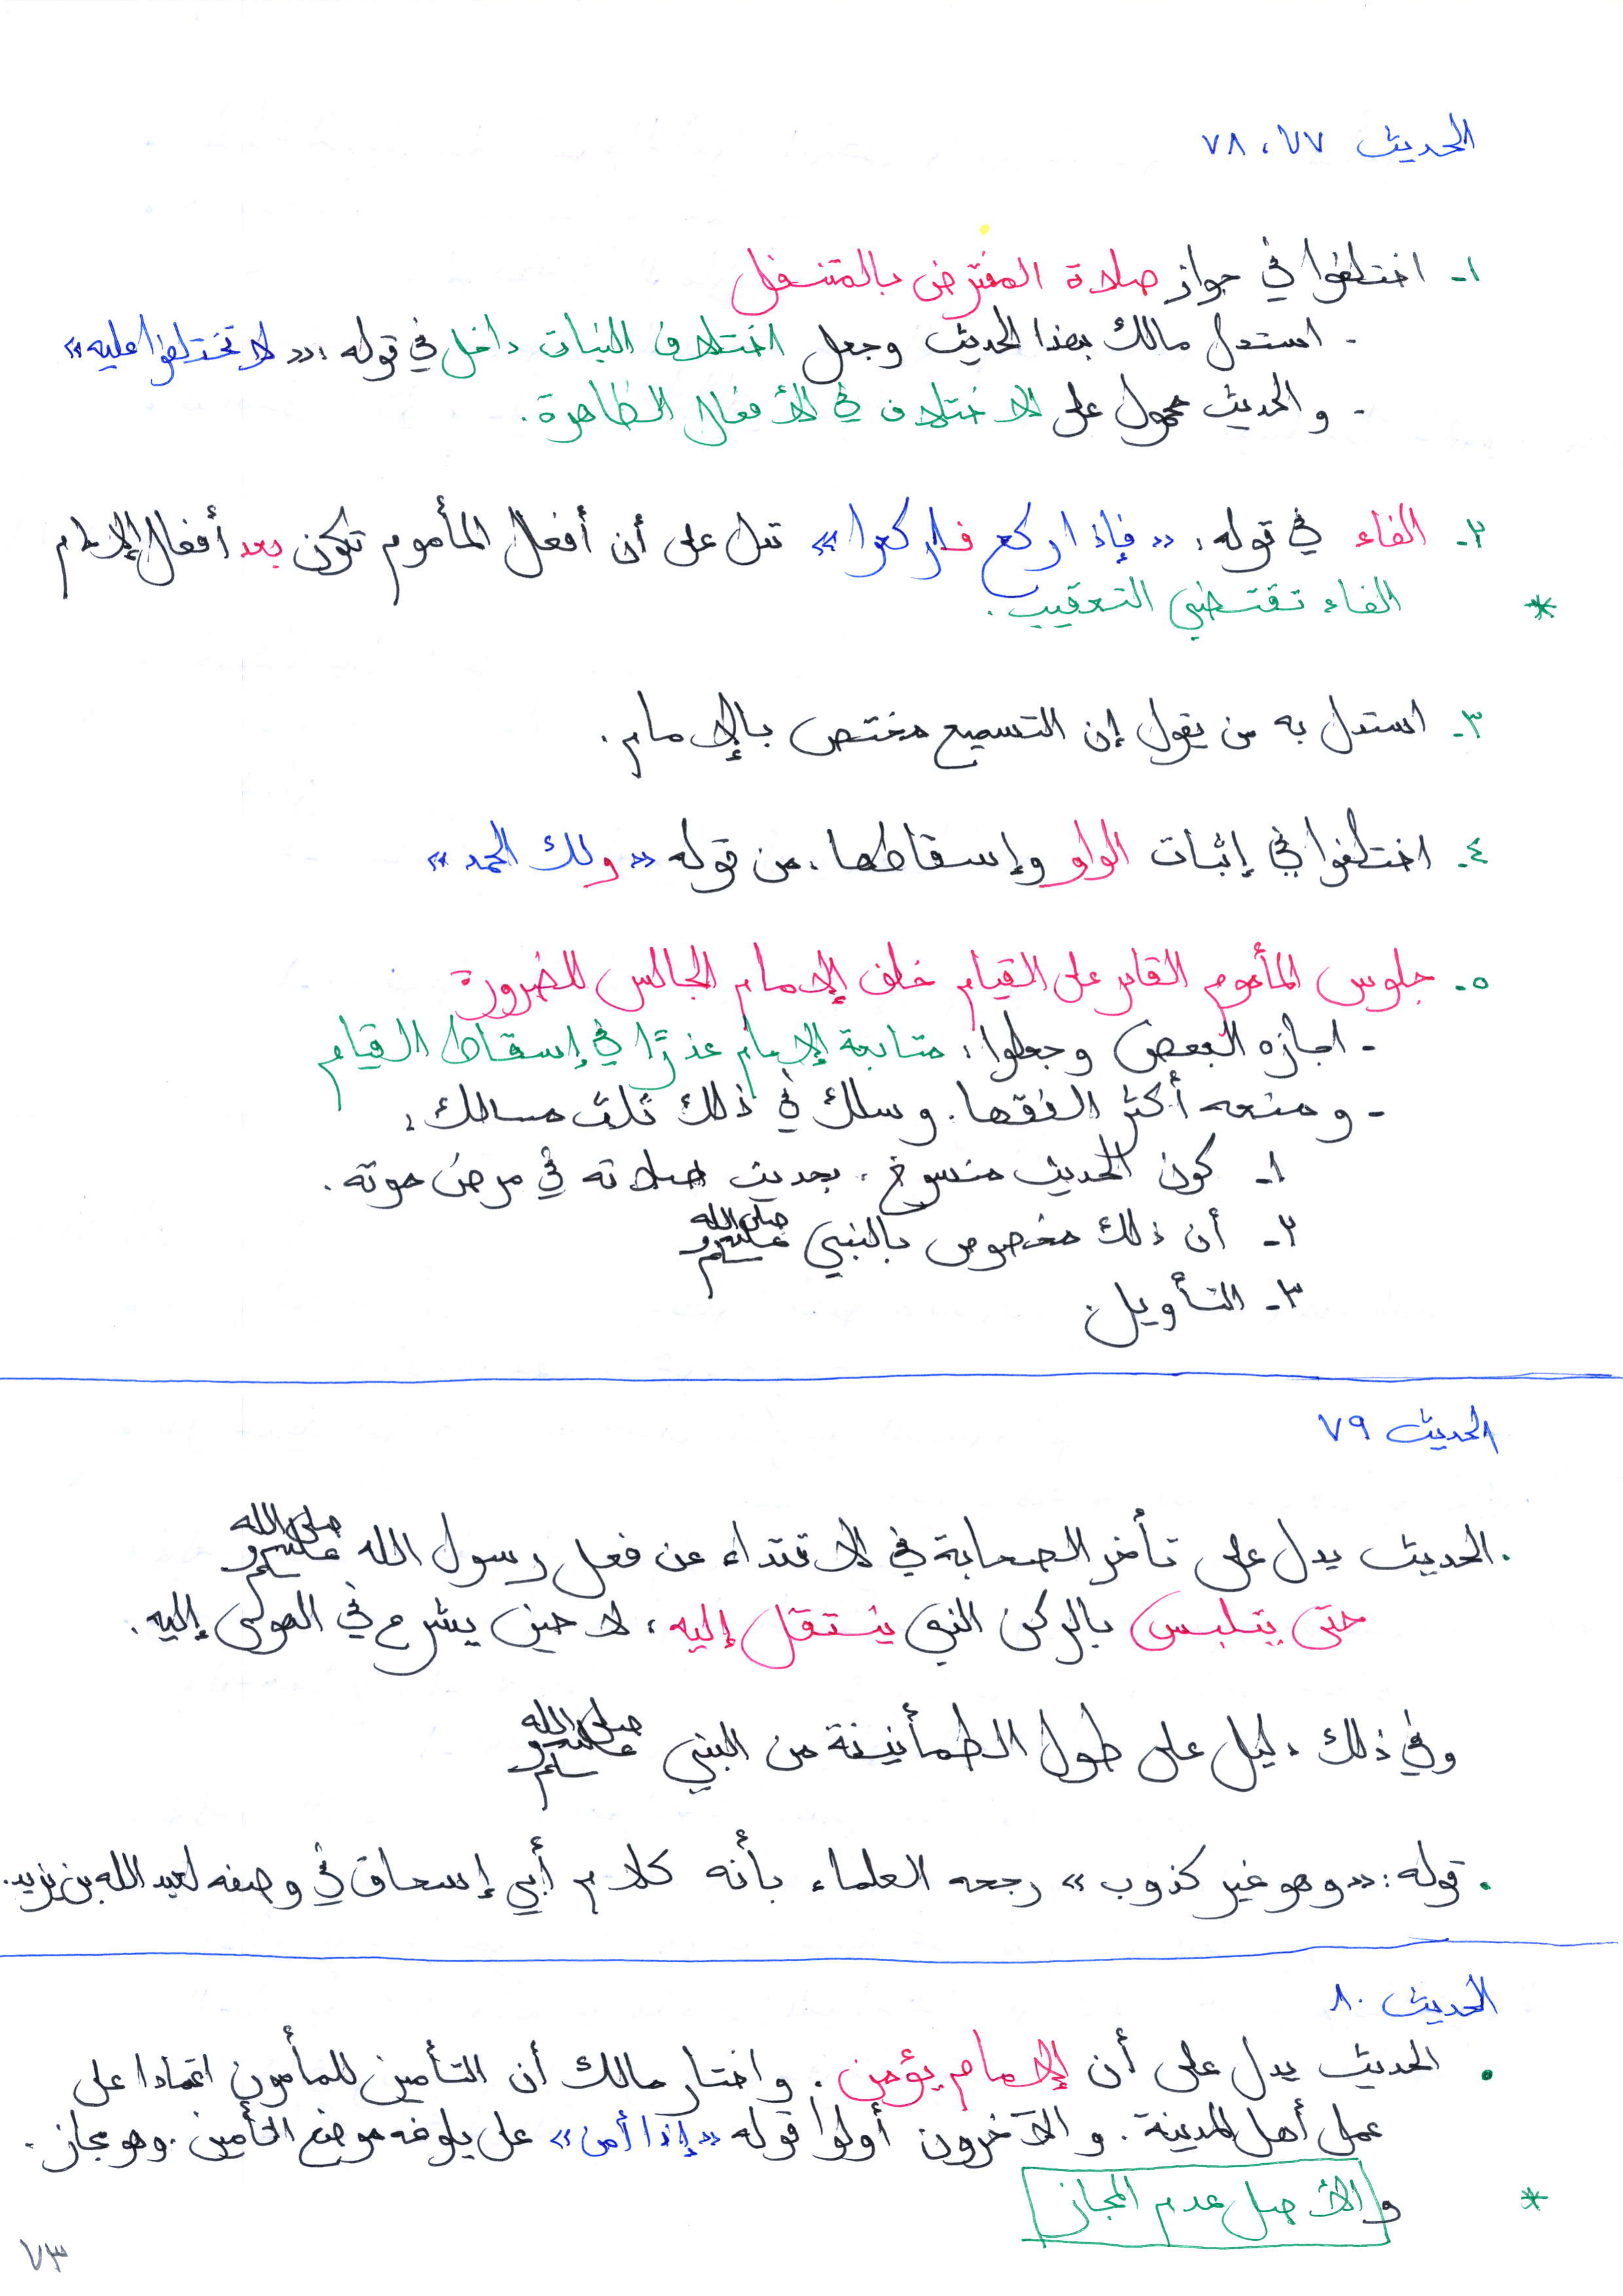 الحديث ٧٧، ٧٨
١- اختلفوا في جواز صلاة المفترض بالمتنفل
- استدل مالك بهذا الحديث وجعل اختلاف النيات داخل في قوله: «لا تختلفوا عليه»
- والحديث محمول على الاختلاف في الأفعال الظاهرة.
٢- الفاء في قوله: «فإذا ركع فاركعوا» تدل على أن أفعال المأموم تكون بعد أفعال الإمام
* الفاء تقتضي التعقيب.
٣- استدل به من يقول إن التسميع مختص بالإمام.
٤- اختلفوا في إثبات الواو وإسقاطها، من قوله «ولك الحمد»
٥- جلوس المأموم القادر على القيام خلف الإمام الجالس للضرورة
- اجازه البعض وجعلوا: متابعة الإمام عذرًا في إسقاط القيام
- ومنعه أكثر الفقهاء. وسلك في ذلك ثلاث مسالك:
١- كون الحديث منسوخ، بحديث صلاته في مرض موته.
٢- أن ذلك مخصوص بالنبي صلى الله عليه وسلم
٣- التأويل
الحديث ٧٩
. الحديث يدل على تأخر الصحابة في الاقتداء عن فعل رسول الله صلى الله عليه وسلم
حتى يتلبس بالركن الذي ينتقل إليه، لا حين يشرع في الهوي إليه.
وفي ذلك دليل على طول الطمأنينة من النبي صلى الله عليه وسلم
. قوله: «وهو غير كذوب» رجحه العلماء بأنه كلام أبي إسحاق في وصفه لعبد الله بن يزيد.
الحديث ٨٠
. الحديث يدل على أن الإمام يؤمن. واختار مالك أن التأمين للمأمون اعتمادا على
عمل أهل المدينة. والآخرون أولوا قوله «إذا أمن» على بلوغه موضع التأمين. وهو مجاز.
* والأصل عدم المجاز
٧٣